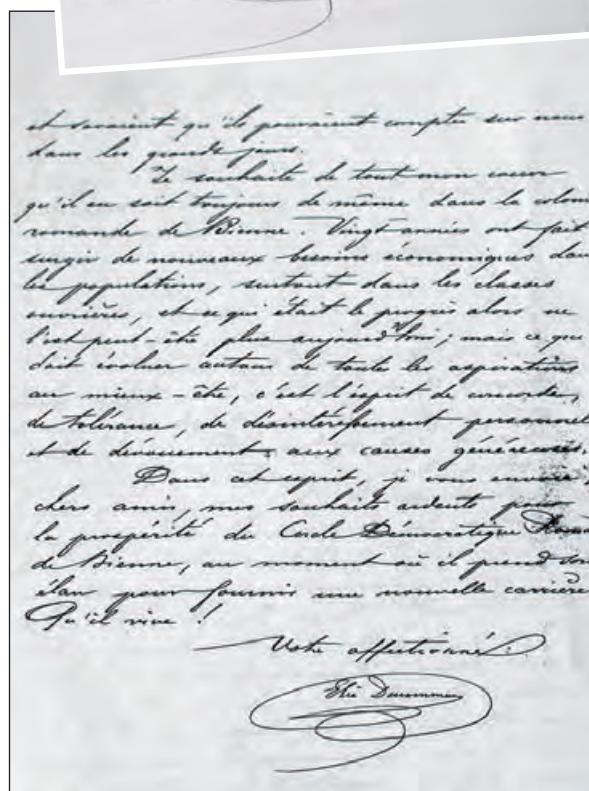 et savaient qu'ils pouvaient compter sur nous
dans les grands jours.
Je souhaite de tout mon coeur
qu'il en soit toujours de même dans la colon
romande de Bienne. Vingt années ont fait
surgir de nouveaux besoins économiques dan
les populations, surtout dans les classes
ouvrières, et ce qui était le progrès alors ne
l'est peut-être plus aujourd'hui; mais ce qui
doit évoluer autour de toutes les aspirations
au mieux-être, c'est l'esprit de concorde,
de tolérance, de désintéressement personnel
et de dévouement aux causes généreuses.
Dans cet esprit, je vous envoie,
chers amis, mes souhaits ardents pour
la prospérité du Cercle Démocratique Roma
de Bienne, au moment où il prend son
élan pour fournir une nouvelle carrière
Qu'il vive !
Votre affectionné:
Elie Ducommun